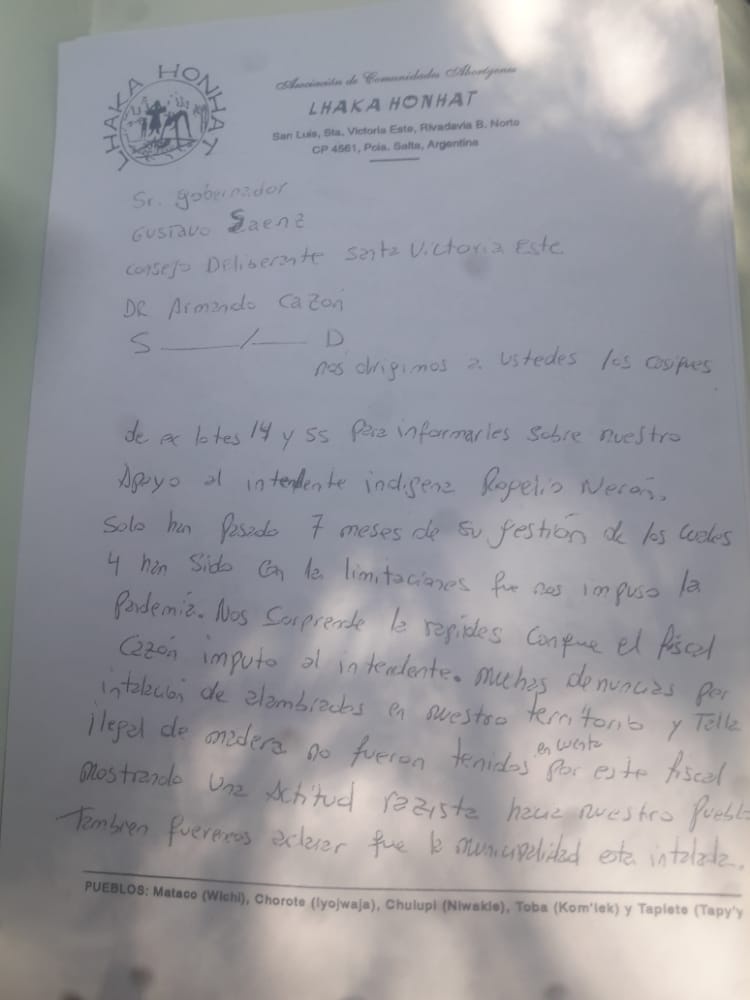 LHAKA HONHAT
Asociación de Comunidades Aborígenes
LHAKA HONHAT
San Luis, Sta. Victoria Este, Rivadavia B. Norte
CP 4561, Pcia. Salta, Argentina
Sr. gobernador
GUSTAVO Saenz
consejo Deliberante Santa Victoria Este
DR Armando Cazón
S ——/—— D
nos dirigimos a ustedes los casiques
de ex lotes 14 y 55 para informarles sobre nuestro
Apoyo al intendente indigena Rogelio Nerón.
Solo han pasado 7 meses de su gestión de los cuales
4 han sido con la limitaciones que nos impuso la
Pandemia. Nos sorprende la rapides conque el fiscal
Cazón imputo al intendente. muchas denuncias por
intalación de alambrados en nuestro territorio y Talla
ilegal de madera no fueron tenidos en cuenta por este fiscal
mostrando una actitud razista hacia nuestro pueblo
Tambien queremos aclarar que la municipalidad esta intalada.
PUEBLOS: Mataco (Wichi), Chorote (Iyojwaja), Chulupi (Niwakle), Toba (Kom'lek) y Tapiete (Tapy'y